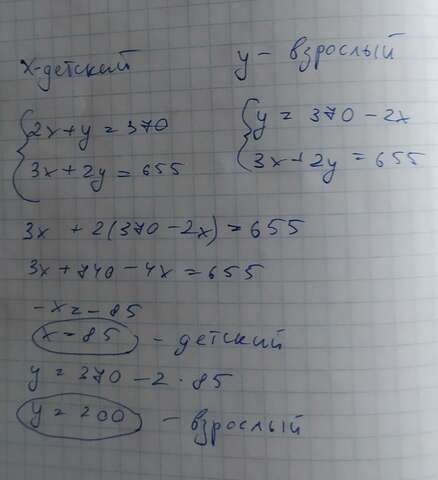 x-детский
y - взрослый
{2x+y=370
3x+2y=655
{y = 370-2x
3x+2y=655
3x +2(370-2x)=655
3x+740-4x=655
-x=-85
x=85 - детский
y=370-2·85
y=200 - взрослый